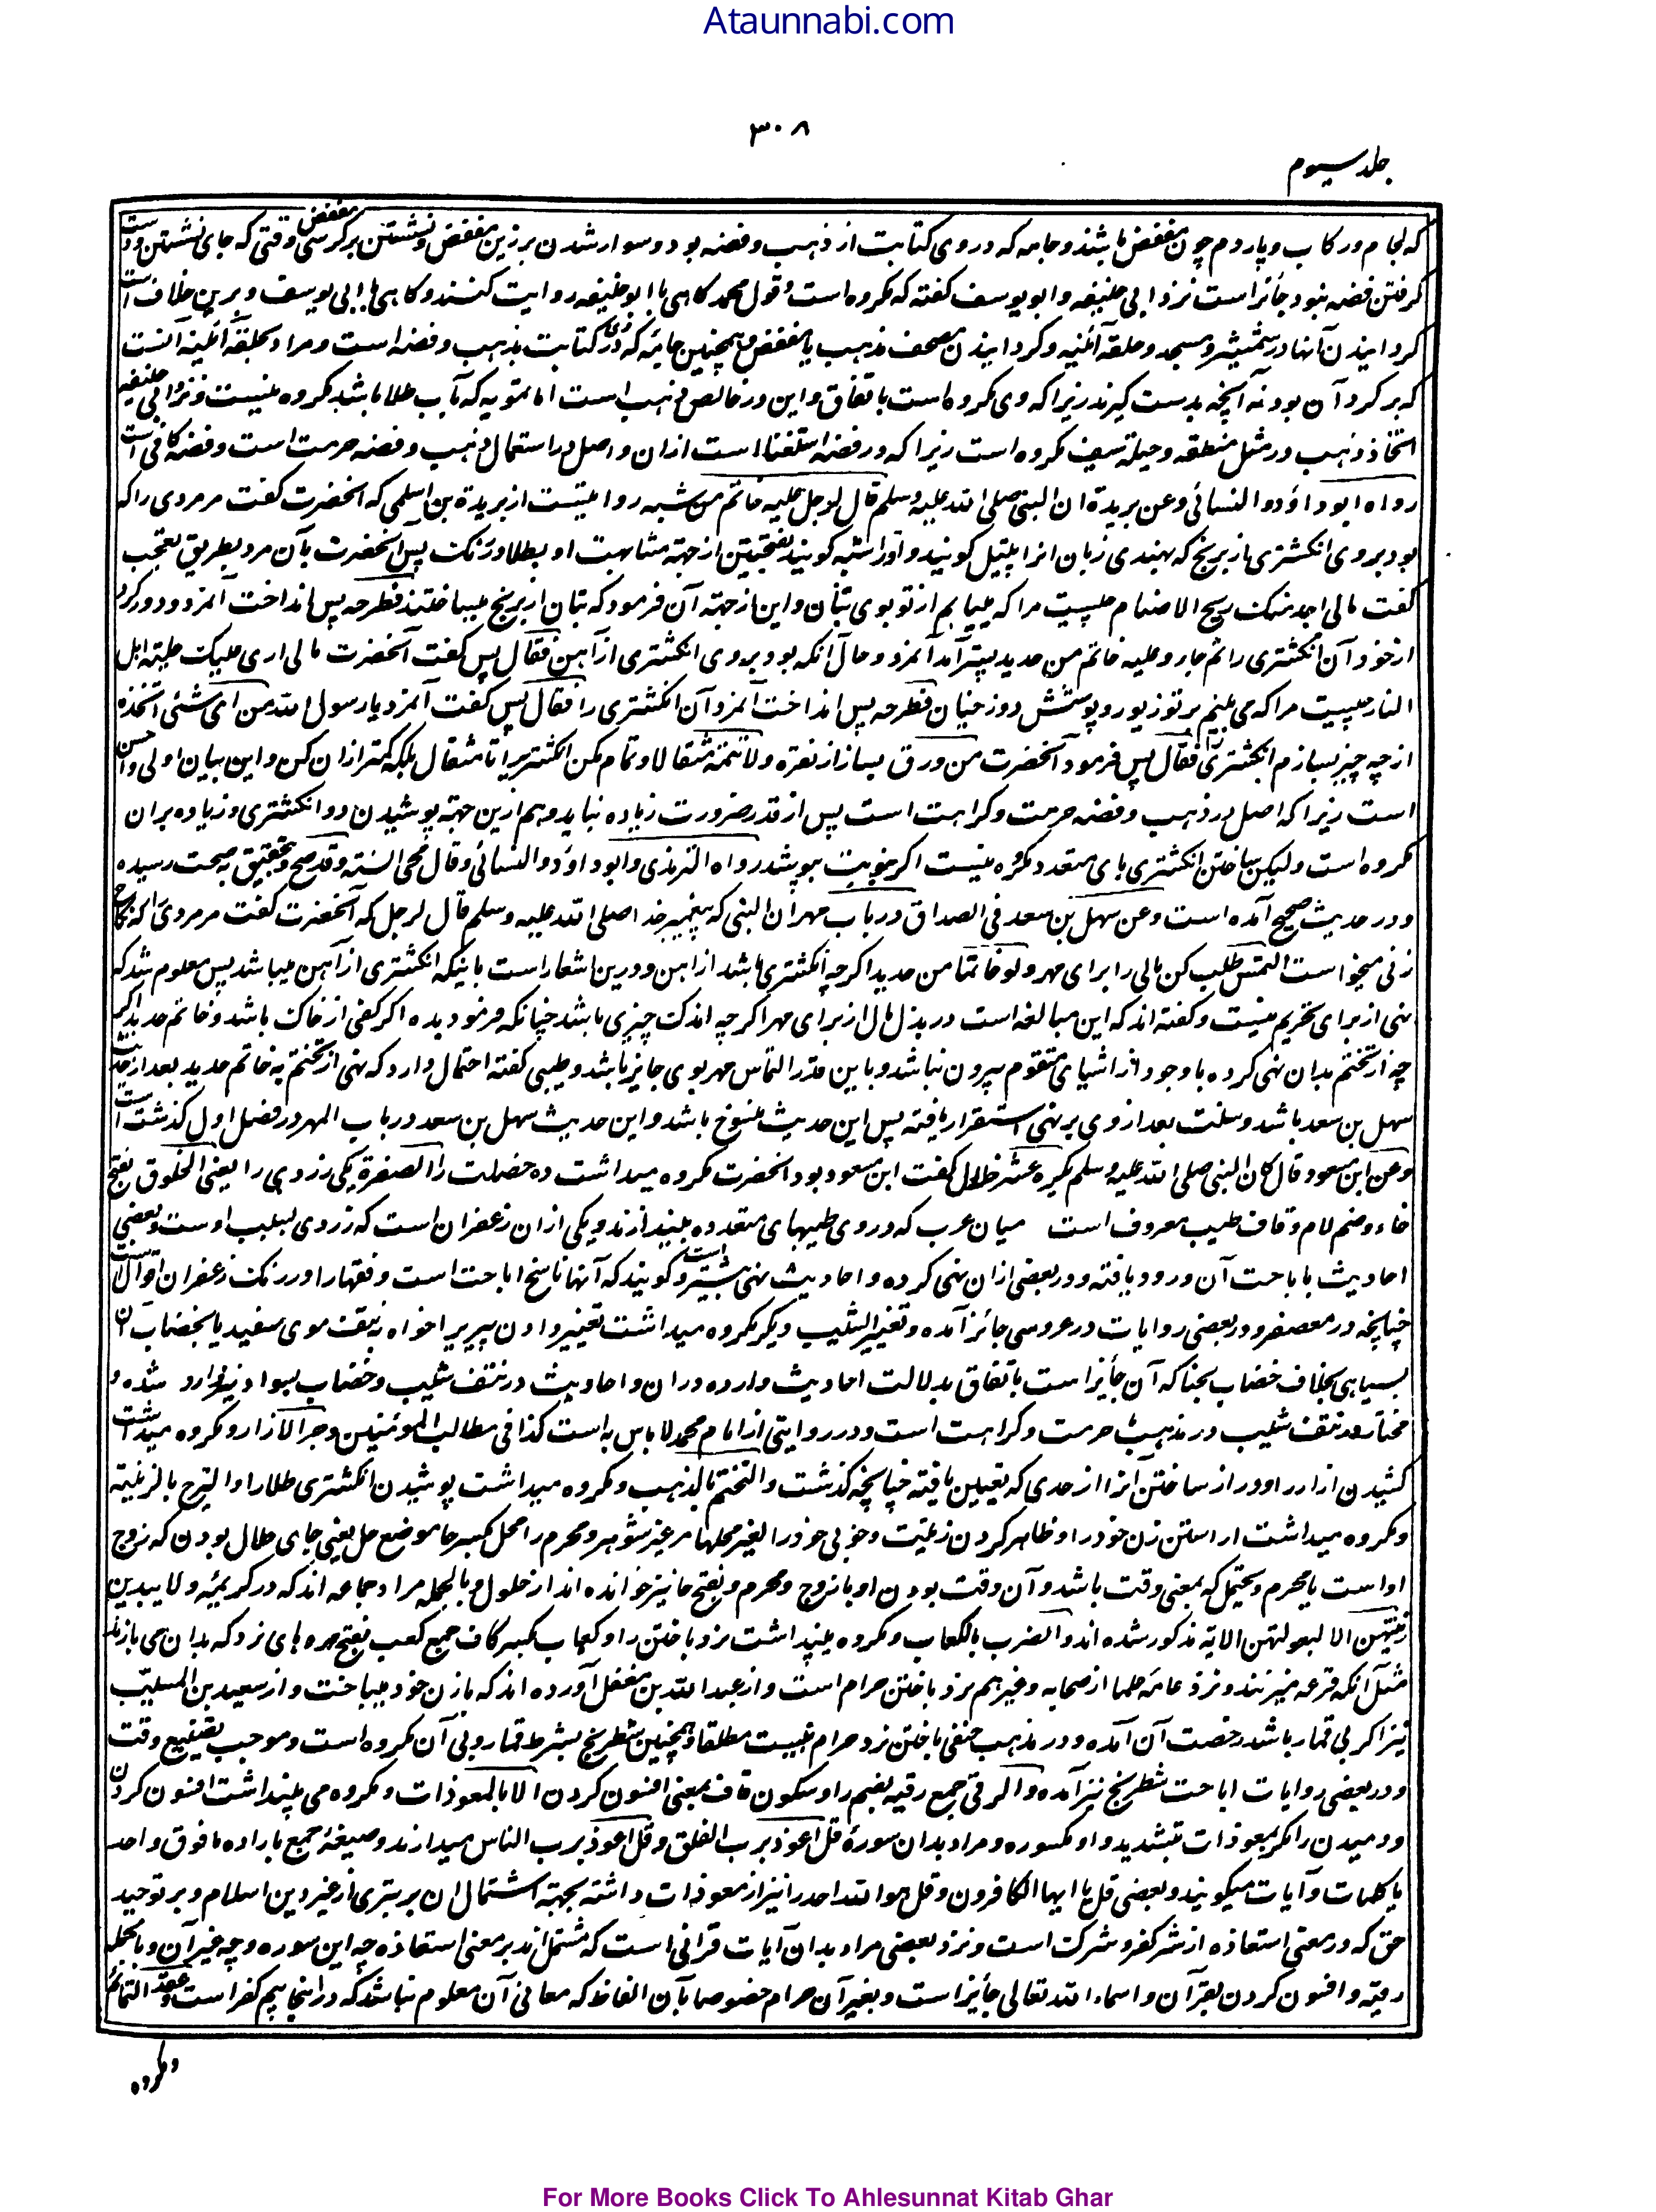 Ataunnabi.com
۳۰۸
جلد سیوم
که لجام و رکاب و پاردم چون مفضض باشند و جامه که در وی کتابت از ذهب و فضه بود و سوار شدن بر زین مفضض و نشستن بر کرسی مفضض وقتی که جای نشستن و دست
کرفتن فضه نبود جائز است نزد ابی حنیفه و ابو یوسف کفته که مکروه است و قول محمد کاهی با ابو حنیفه روایت کنند و کاهی با ابی یوسف و برین خلاف است
کردانیدن آنها در شمشیر و مسجد و حلقه آئنیه و کردانیدن مصحف مذهب یا مفضض و همچنین جامه که در وی کتابت بذهب و فضه است و مراد بحلقه آئینه آنست
که بر کرد آن بود نه آنچه بدست کیرند زیرا که وی مکروه است باتفاق و این در خالص ذهب است اما تمویه که بآب طلا باشد مکروه نیست و نزد ابی حنیفه
اتخاذ ذهب در مثل منطقه و حیله سیف مکروه است زیرا که در فضه استغنا است ازان و اصل در استعمال ذهب و فضه حرمت است و فضه کافی است
رواه ابو داؤد و النسائی و عن بریدة ان النبی صلی الله علیه وسلم قال لرجل علیه خاتم من شبه روایتست از بریدة بن اسلمی که آنحضرت کفت مر مردی را که
بود بر وی انکشتری از برنج که بهندی زبان انرا پیتل کویند و او را شبه کویند بفتحتین از جهة مشابهت او بطلا در رنک پس آنحضرت بآن مرد بطریق تعجب
کفت مالی اجد منک ریح الاصنام چیست مرا که مییابم از تو بوی بتان و این از جهة آن فرمود که بتان از برنج میساختند فطرحه پس انداخت آنمرد و دور کرد
از خود آن انکشتری را ثم جاء و علیه خاتم من حدید پستر آمد آنمرد و حال آنکه بود بر وی انکشتری از آهن فقال پس کفت آنحضرت مالی اری علیک حلیة اهل
النار چیست مرا که می بینم بر تو زیور و پوشش دوزخیان فطرحه پس انداخت آنمرد آن انکشتری را فقال پس کفت آنمرد یا رسول الله من ای شئی اتخذه
از چه چیز بسازم انکشتری را فقال پس فرمود آنحضرت من ورق بساز از نقره و لا تتمه مثقالا و تمام مکن انکشتری را تا مثقال بلکه کمتر ازان کن و این بیان اولی و احسن
است زیرا که اصل در ذهب و فضه حرمت و کراهت است پس از قدر ضرورت زیاده نباید و هم ازین جهة پوشیدن دو انکشتری و زیاده بران
مکروه است ولیکن ساختن انکشتری های متعدد مکره نیست اکر بنوبت بپوشد رواه الترمذی و ابو داؤد و النسائی و قال محی السنة و قد صح و بتحقیق بصحت رسیده
و در حدیث صحیح آمده است و عن سهل بن سعد فی الصداق در باب مهر ان النبی که پیغمبر خدا صلی الله علیه وسلم قال لرجل که آنحضرت کفت مر مردی را که نکاح
زنی میخواست التمس طلب کن مالی را برای مهر و لو خاتما من حدید اکرچه انکشتری باشد از اهن و درین اشعار است باینکه انکشتری از آهن میباشد پس معلوم شد که
نهی از برای تحریم نیست و کفته اند که این مبالغه است در بذل مال از برای مهر اکرچه اندک چیزی باشد چنانکه فرمود بده اکر کفی از خاک باشد و خاتم حدید اکر
چه از تختم بدان نهی کرده با وجود از اشیای متقوم بیرون نباشد و باین قدر التماس مهر بوی جایز باشد و طیبی کفته احتمال دارد که نهی از تختم به خاتم حدید بعد از حدیث
سهل بن سعد باشد و سنت بعد از وی بر نهی استقرار یافته پس این حدیث منسوخ باشد و این حدیث سهل بن سعد در باب المهر در فصل اول کذشت است
وعن ابن مسعود قال کان النبی صلی الله علیه وسلم یکره عشر خلال کفت ابن مسعود بود آنحضرت مکروه میداشت ده خصلت را الصفرة یکی زردی را یعنی الخلوق بفتح
خاء و ضم لام و قاف طیب معروف است میان عرب که در وی طیبهای متعدده بیندازند و یکی ازان زعفران است که زردی بسبب اوست و بعضی
احادیث باباحت آن ورود یافته و در بعضی ازان نهی کرده و احادیث نهی بیشتر است و کویند که آنها ناسخ اباحت است و فقها را در رنک زعفران اقوال است
چنانچه در معصفر و در بعضی روایات در عروسی جائز آمده و تغییر الشیب دیکر مکروه میداشت تغییر دادن پیری را خواه به نتف موی سفید یا بخضاب آن
بسیاهی بخلاف خضاب بحنا که آن جائز است باتفاق بدلالت احادیث وارده دران و احادیث در نتف شیب و خضاب بسواد نیز وارد شده و
مختار در نتف شیب در مذهب حرمت و کراهت است و در روایتی از امام محمد لا باس به است کذا فی مطالب المؤمنین و جر الازار و مکروه میداشت
کشیدن ازار را و دراز ساختن آنرا از حدی که تعیین یافته چنانچه کذشت و التختم بالذهب و مکروه میداشت پوشیدن انکشتری طلا را و التبرج بالزینة
و مکروه میداشت اراستن زن خود را و ظاهر کردن زینت و خوبی خود را لغیر محلها مر غیر شوهر و محرم را محل بکسر حا موضع حل یعنی جای حلال بودن که زوج
او است یا محرم و یحتمل که بمعنی وقت باشد و آن وقت بودن او با زوج و محرم و بفتح حا نیز خوانده اند از حلول و بالجمله مراد جماعه اند که در کریمهٔ و لا یبدین
زینتهن الا لبعولتهن الایة مذکور شده اند و الضرب بالکعاب و مکروه می پنداشت نرد باختن را و کعاب بکسر کاف جمع کعب بفتح مهره های نرد که بدان می بازند
مثل آنکه قرعه میزنند و نزد عامه علما از صحابه و غیرهم نرد باختن حرام است و از عبدالله بن مغفل آورده اند که با زن خود میباخت و از سعید بن المسیب
نیز اکر بی قمار باشد رخصت آن آمده و در مذهب حنفی باختن نرد حرام است مطلقا و همچنین شطرنج بشرط قمار و بی آن مکروه است و موجب تضییع وقت
و در بعضی روایات اباحت شطرنج نیز آمده و الرقی جمع رقیه بضم را و سکون قاف بمعنی افسون کردن الا بالمعوذات و مکروه می پنداشت افسون کردن
و دمیدن را مکر بمعوذات بتشدید واو مکسوره و مراد بدان سورهٔ قل اعوذ برب الفلق و قل اعوذ برب الناس میدارند و صیغهٔ جمع باراده ما فوق واحد
یا کلمات و آیات میکویند و بعضی قل یا ایها الکافرون و قل هو الله احد را نیز از معوذات داشته بجهة اشتمال ان بر تبری از غیر دین اسلام و بر توحید
حق که در معنی استعاذه از شر کفر و شرکت است و نزد بعضی مراد بدان آیات قرآنی است که مشتمل اند بر معنی استعاذه چه این سوره و چه غیر آن و بالجمله
رقیه و افسون کردن بقرآن و اسماء الله تعالی جائز است و بغیر آن حرام خصوصا بآن الفاظ که معانی آن معلوم نباشد که در انجا بیم کفر است و عقد التمائم
و مکروه
For More Books Click To Ahlesunnat Kitab Ghar